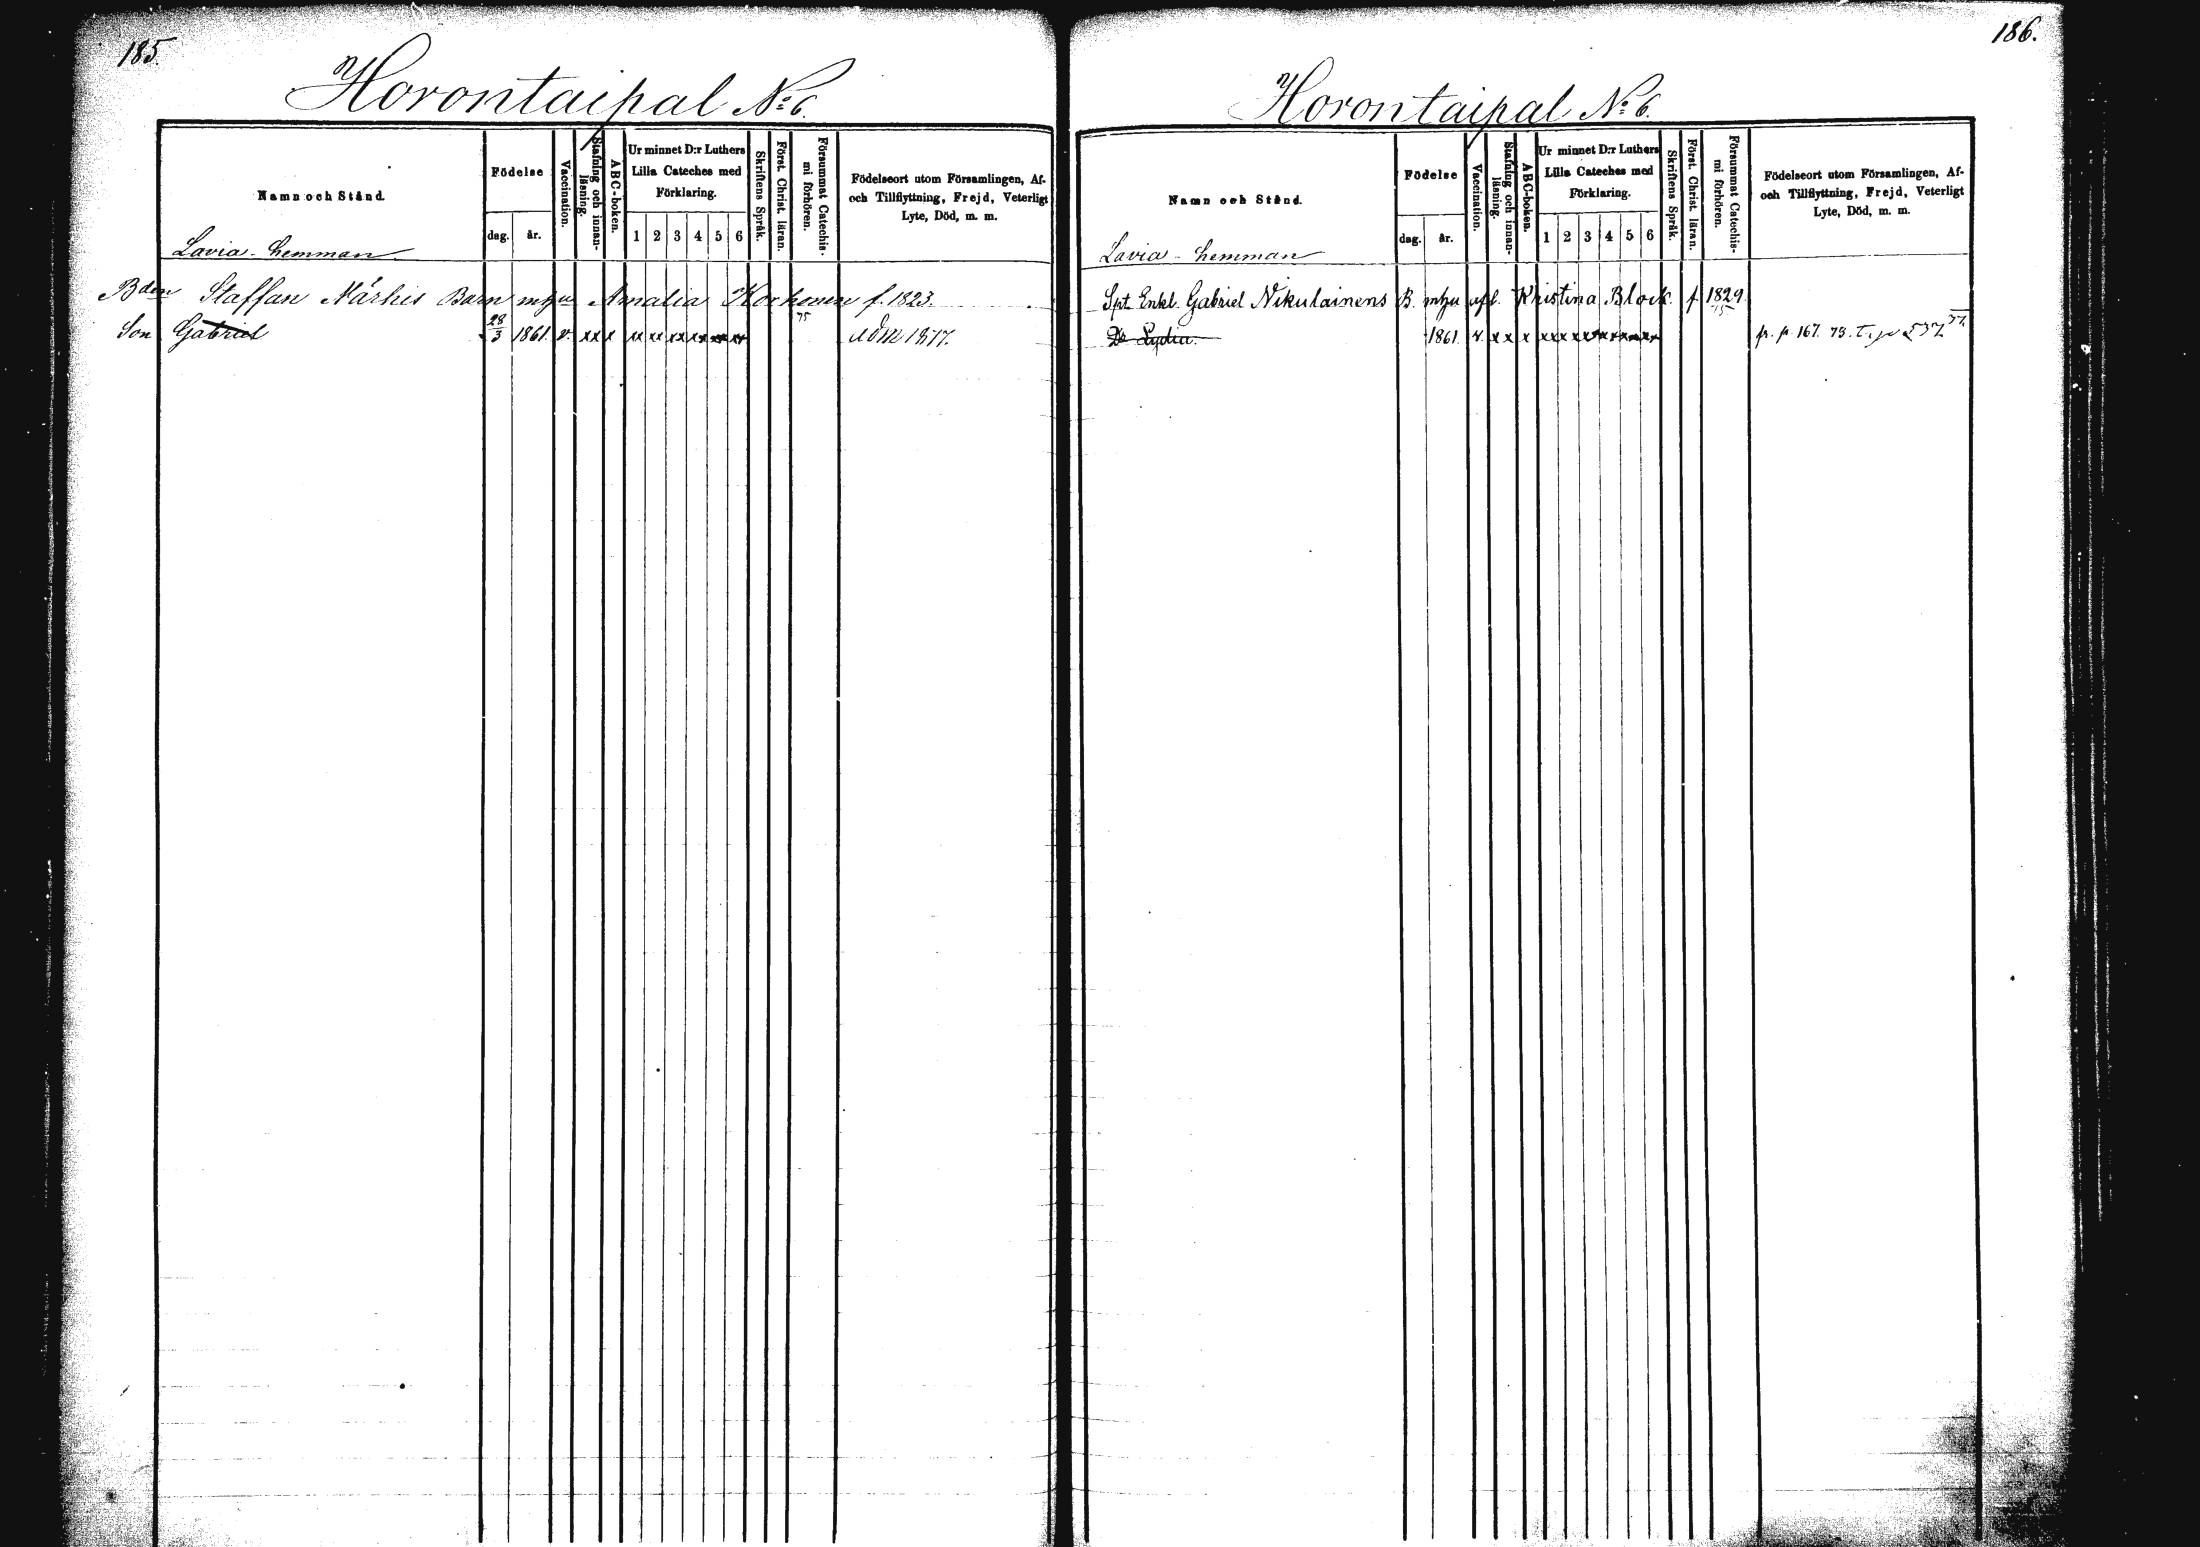 185.
Horontaipal No 6.
Namn och Stånd.
Födelse
dag. år.
Vaccination.
Stafning och innan-
läsning.
ABC-boken.
Ur minnet D:r Luthers
Lilla Cateches med
Förklaring.
1 2 3 4 5 6
Skriftens Språk.
Först. Christ. läran.
Försummat Catechis-
mi förhören.
Födelseort utom Församlingen, Af-
och Tillflyttning, Frejd, Veterligt
Lyte, Död, m. m.
Lavia hemman
Bden Staffan Närhis Barn m hu Amalia Korhonen f. 1823.
75
Son Gabriel 28/3 1861. v. x x x x x x x x x x x x x x x adm 1877.
186.
Horontaipal No 6.
Namn och Stånd.
Födelse
dag. år.
Vaccination.
Stafning och innan-
läsning.
ABC-boken.
Ur minnet D:r Luthers
Lilla Cateches med
Förklaring.
1 2 3 4 5 6
Skriftens Språk.
Först. Christ. läran.
Försummat Catechis-
mi förhören.
Födelseort utom Församlingen, Af-
och Tillflyttning, Frejd, Veterligt
Lyte, Död, m. m.
Lavia - hemman
Spt. Enkl. Gabriel Nikulainens B. m hu afl. Kristina Block f 1829
75
Dr Lydia. 1861. v. x x x x x x x x x x x x x x fr. p 167. 73. T. p 537 77.